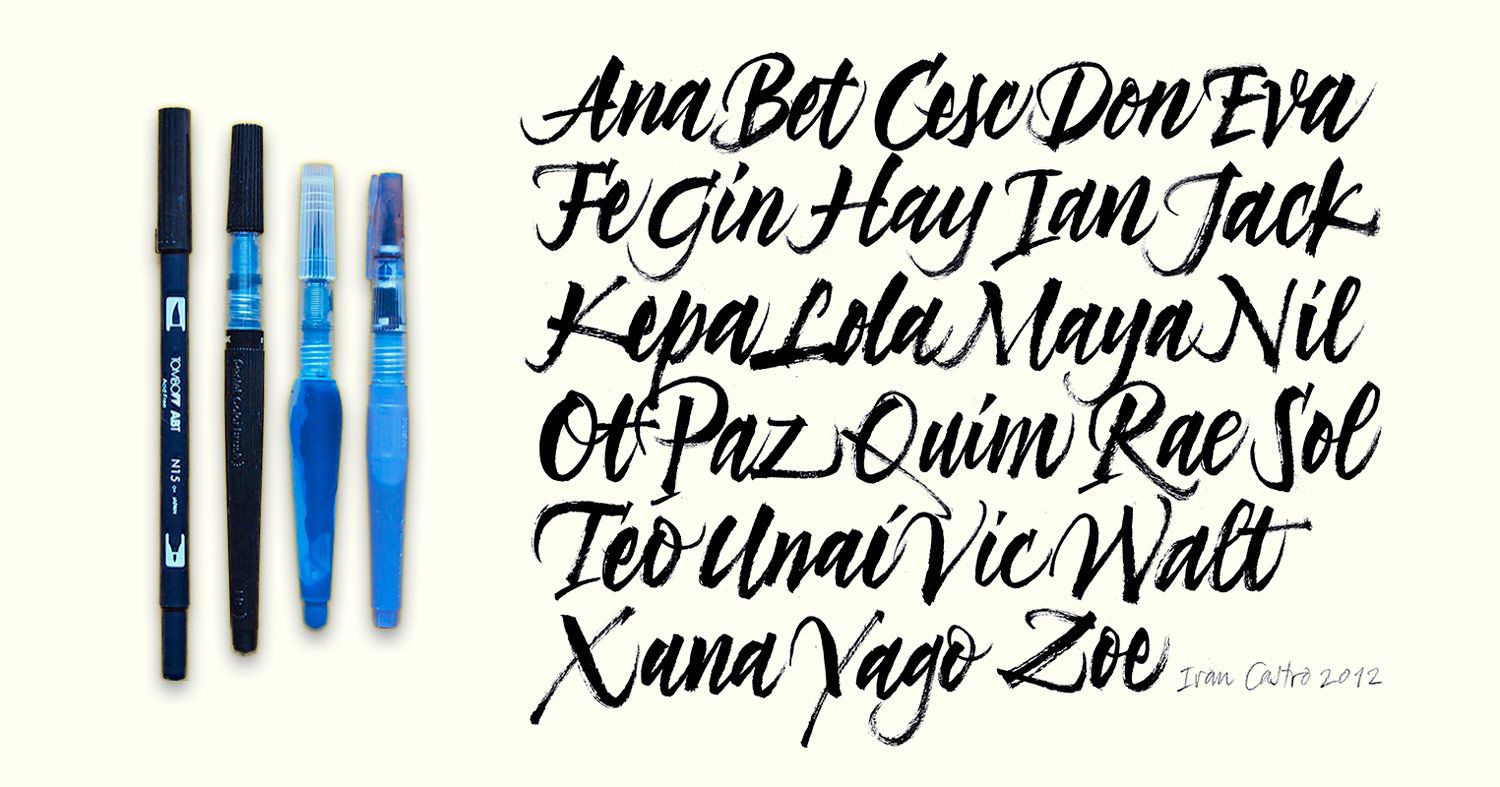 Ana Bet Cesc Don Eva
Fe Gin Hay Ian Jack
Kepa Lola Maya Nil
Ot Paz Quim Rae Sol
Teo Unai Vic Walt
Xana Yago Zoe
Ivan Castro 2012
TOMBOW ABT
Acid Free
N15
JAPAN